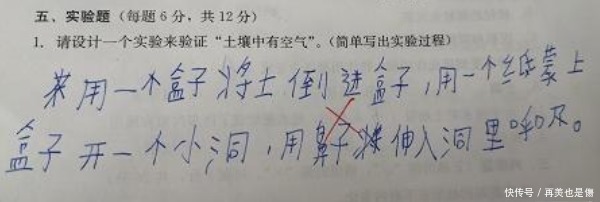 五、实验题（每题6分，共12分）
1. 请设计一个实验来验证“土壤中有空气”。（简单写出实验过程）
来用一个盒子将土倒进盒子，用一个纸蒙上
盒子开一个小洞，用鼻子来伸入洞里呼吸。
快传号／再美也是傷